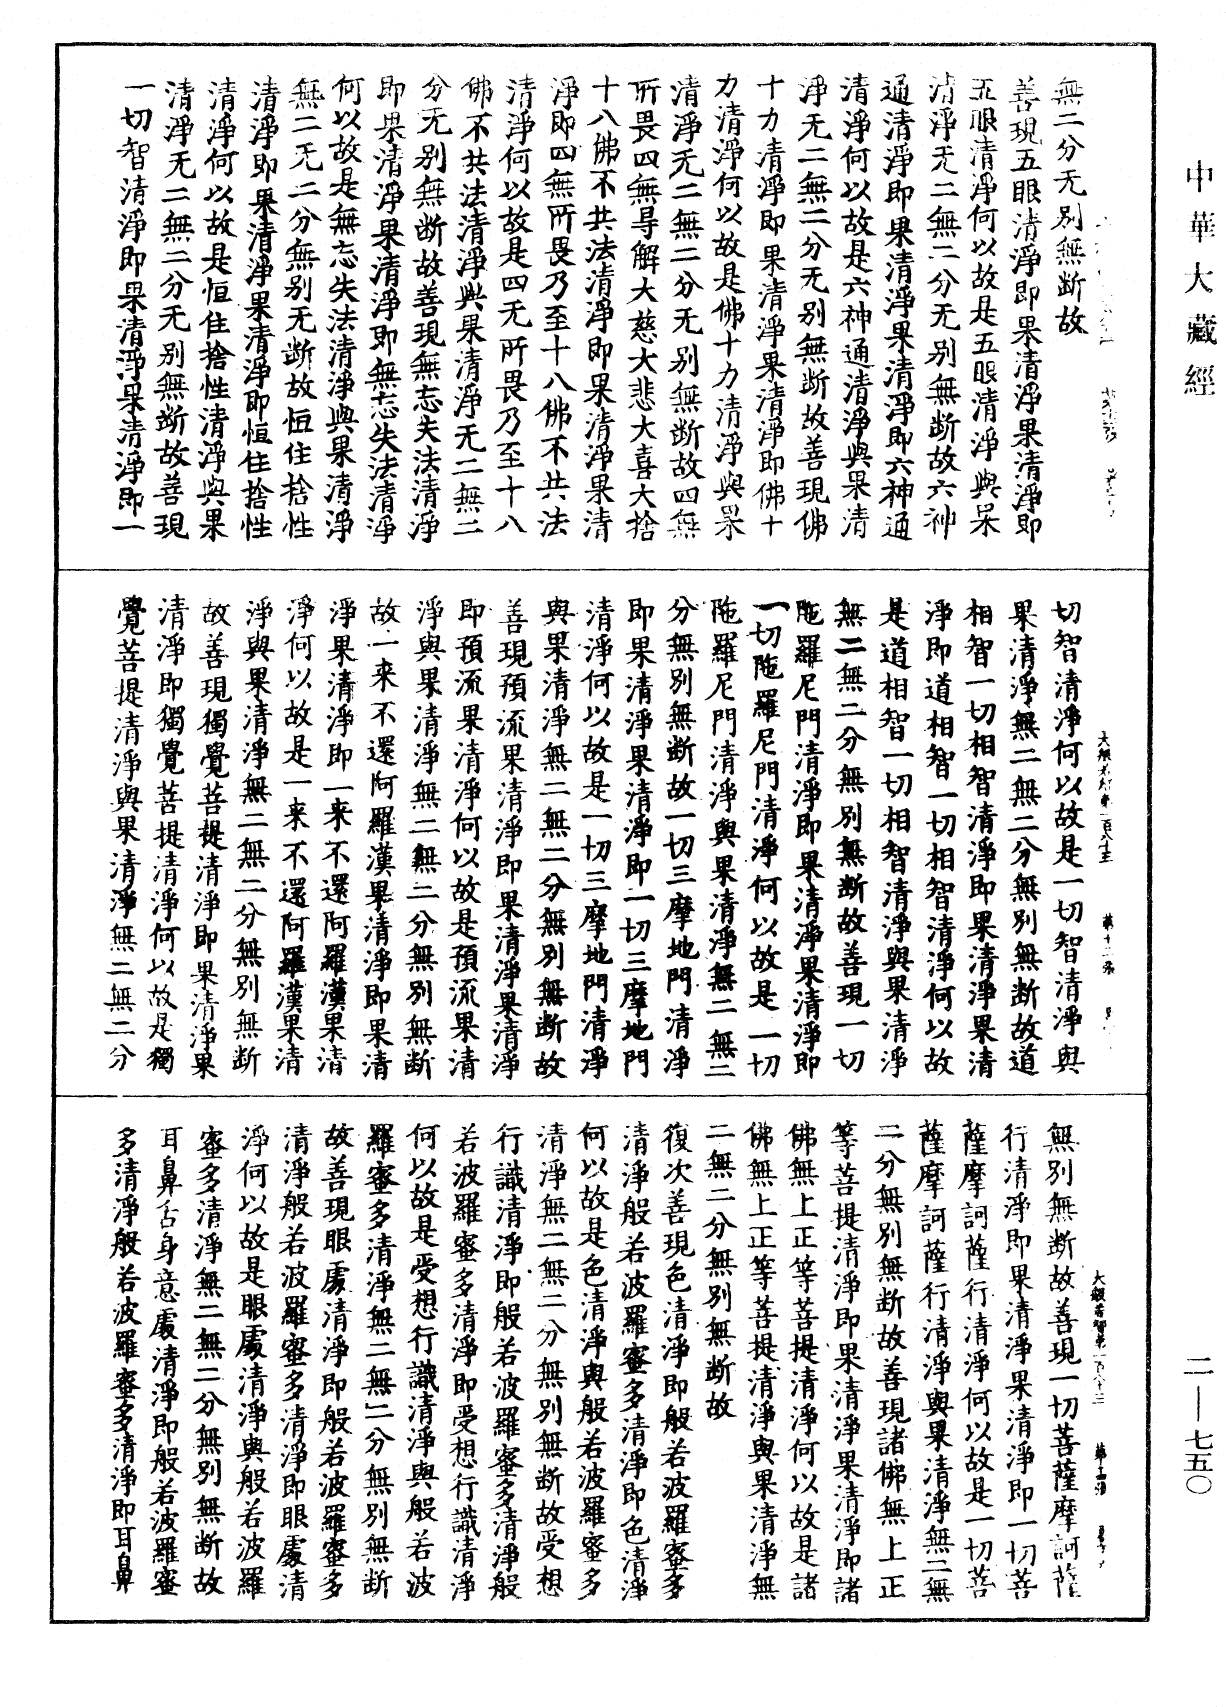 中華大藏經
無二分无別無断故
善現五眼清淨即果清淨果清淨即
五眼清淨何以故是五眼清淨與果
清淨无二無二分无別無断故六神
通清淨即果清淨果清淨即六神通
清淨何以故是六神通清淨與果清
淨无二無二分无別無断故善現佛
十力清淨即果清淨果清淨即佛十
力清淨何以故是佛十力清淨與果
清淨无二無二分无別無断故四無
所畏四無导解大慈大悲大喜大捨
十八佛不共法清淨即果清淨果清
淨即四無所畏乃至十八佛不共法
清淨何以故是四无所畏乃至十八
佛不共法清淨與果清淨无二無二
分无別無断故善現無忘失法清淨
即果清淨果清淨即無忘失法清淨
何以故是無忘失法清淨與果清淨
無二无二分無別无断故恒住捨性
清淨即果清淨果清淨即恒住捨性
清淨何以故是恒住捨性清淨與果
清淨无二無二分无別無断故善現
一切智清淨即果清淨果清淨即一
大般若經第一百八十三 第十三張
切智清淨何以故是一切智清淨與
果清淨無二無二分無別無断故道
相智一切相智清淨即果清淨果清
淨即道相智一切相智清淨何以故
是道相智一切相智清淨與果清淨
無二無二分無別無断故善現一切
陁羅尼門清淨即果清淨果清淨即
一切陁羅尼門清淨何以故是一切
陁羅尼門清淨與果清淨無二無二
分無別無断故一切三摩地門清淨
即果清淨果清淨即一切三摩地門
清淨何以故是一切三摩地門清淨
與果清淨無二無二分無別無断故
善現預流果清淨即果清淨果清淨
即預流果清淨何以故是預流果清
淨與果清淨無二無二分無別無断
故一来不還阿羅漢果清淨即果清
淨果清淨即一来不還阿羅漢果清
淨何以故是一来不還阿羅漢果清
淨與果清淨無二無二分無別無断
故善現獨覺菩提清淨即果清淨果
清淨即獨覺菩提清淨何以故是獨
覺菩提清淨與果清淨無二無二分
大般若經第一百八十三
無別無断故善現一切菩薩摩訶薩
行清淨即果清淨果清淨即一切菩
薩摩訶薩行清淨何以故是一切菩
薩摩訶薩行清淨與果清淨無二無
二分無別無断故善現諸佛無上正
等菩提清淨即果清淨果清淨即諸
佛無上正等菩提清淨何以故是諸
佛無上正等菩提清淨與果清淨無
二無二分無別無断故
復次善現色清淨即般若波羅蜜多
清淨般若波羅蜜多清淨即色清淨
何以故是色清淨與般若波羅蜜多
清淨無二無二分無別無断故受想
行識清淨即般若波羅蜜多清淨般
若波羅蜜多清淨即受想行識清淨
何以故是受想行識清淨與般若波
羅蜜多清淨無二無二分無別無断
故善現眼處清淨即般若波羅蜜多
清淨般若波羅蜜多清淨即眼處清
淨何以故是眼處清淨與般若波羅
蜜多清淨無二無二分無別無断故
耳鼻舌身意處清淨即般若波羅蜜
多清淨般若波羅蜜多清淨即耳鼻
二—七五〇